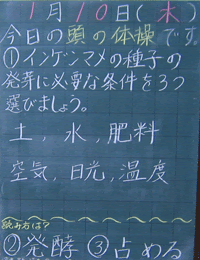 1月10日(木)
今日の頭の体操です。
①インゲンマメの種子の
発芽に必要な条件を3つ
選びましょう。
土，水，肥料
空気，日光，温度
読み方は？
②発酵 ③占める